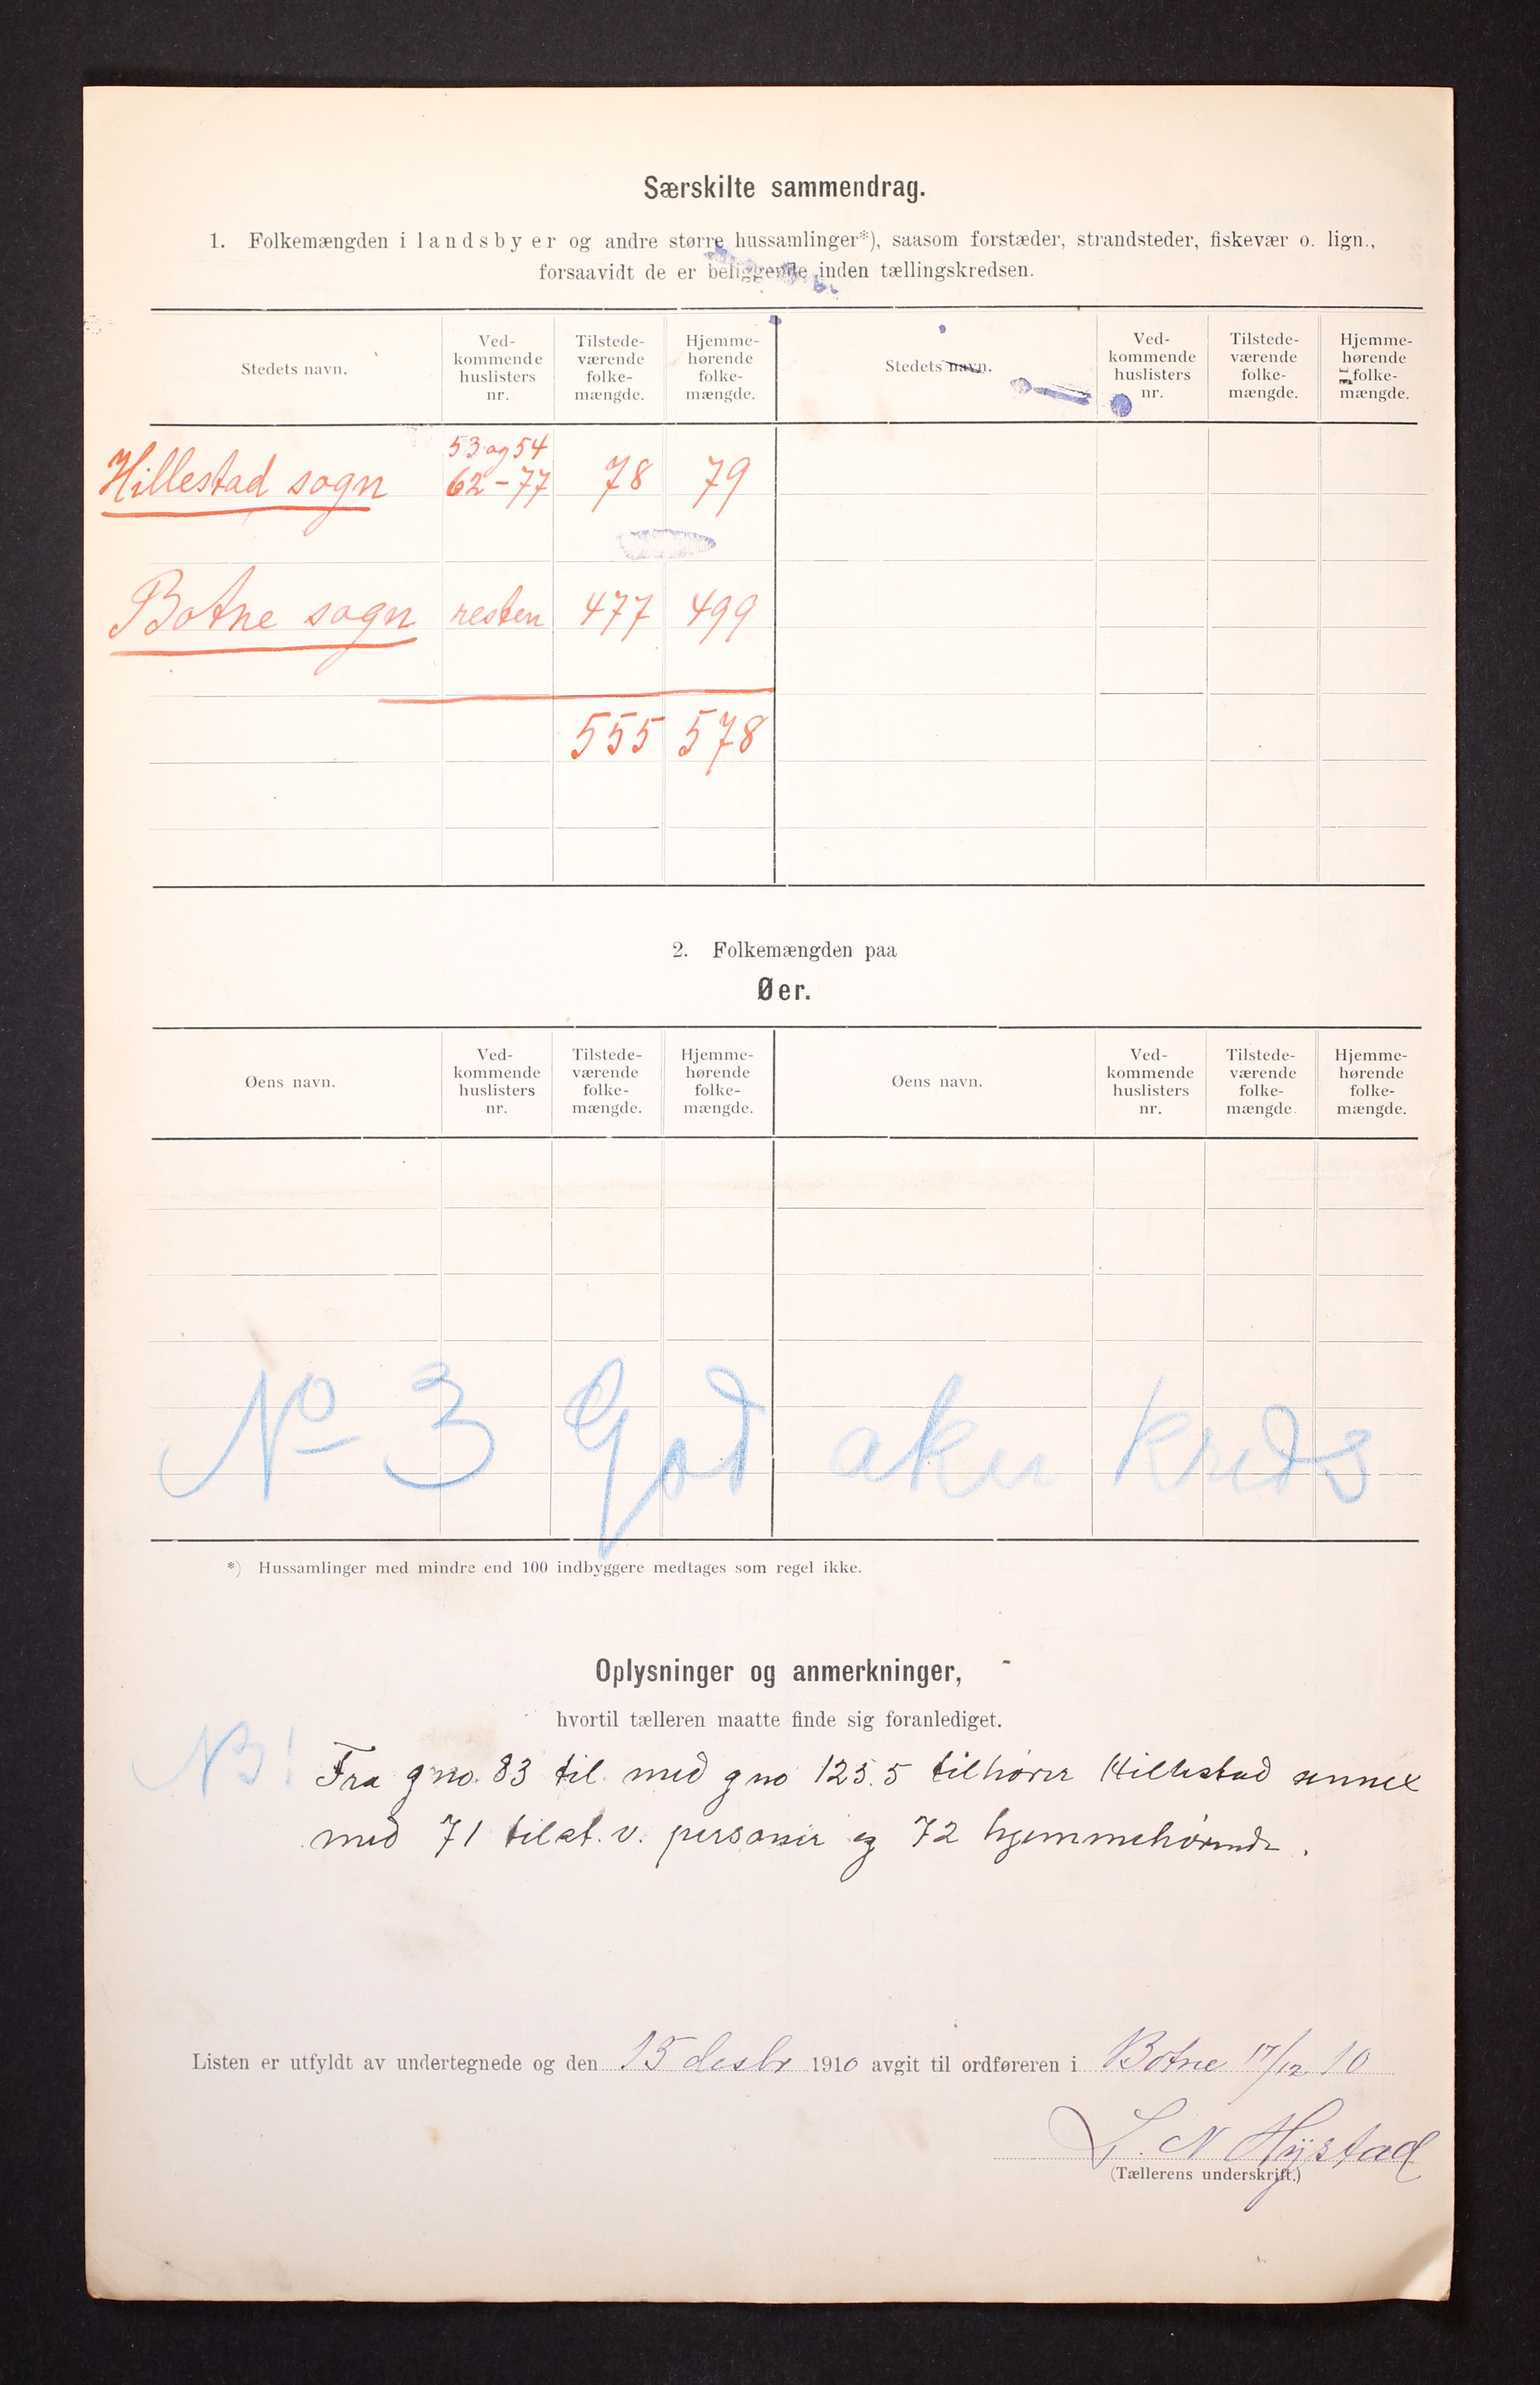 Særskilte sammendrag.
1. Folkemængden i landsbyer og andre større hussamlinger*), saasom forstæder, strandsteder, fiskevær o. lign.,
forsaavidt de er beliggende inden tællingskredsen.
Stedets navn. Ved-kommende huslisters nr. Tilstede-værende folke-mængde. Hjemme-hørende folke-mængde. Stedets navn. Ved-kommende huslisters nr. Tilstede-værende folke-mængde. Hjemme-hørende folke-mængde.
53 og 54
Hillestad sogn 62-77 78 79
Botne sogn resten 477 499
555 578
2. Folkemængden paa
Øer.
Øens navn. Ved-kommende huslisters nr. Tilstede-værende folke-mængde. Hjemme-hørende folke-mængde. Øens navn. Ved-kommende huslisters nr. Tilstede-værende folke-mængde Hjemme-hørende folke-mængde.
No 3 God aker kreds
*) Hussamlinger med mindre end 100 indbyggere medtages som regel ikke.
Oplysninger og anmerkninger,
hvortil tælleren maatte finde sig foranlediget.
NB! Fra gno. 83 til med gno 125.5 tilhører Hillestad annex
med 71 tilst. v. personer og 72 hjemmehørende.
Listen er utfyldt av undertegnede og den 15 desbr 1910 avgit til ordføreren i Botne 17/12 10
L. N Hystad
(Tællerens underskrift.)